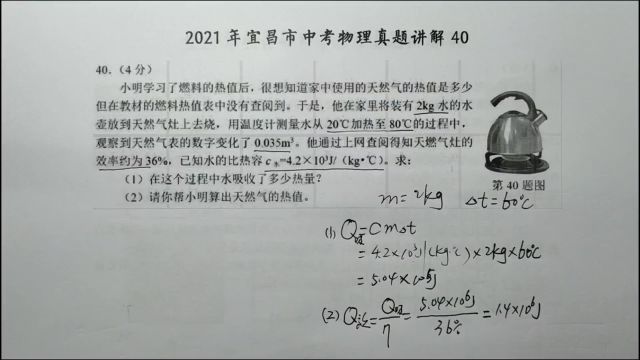 2021年宜昌市中考物理真题讲解 40
40.(4分)
小明学习了燃料的热值后，很想知道家中使用的天然气的热值是多少
但在教材的燃料热值表中没有查阅到。于是，他在家里将装有2kg水的水
壶放到天然气灶上去烧，用温度计测量水从20℃加热至80℃的过程中，
观察到天然气表的数字变化了0.035m³。他通过上网查阅得知天燃气灶的
效率约为36%，已知水的比热容c水=4.2×10³J/（kg·℃）。求：
（1）在这个过程中水吸收了多少热量？
（2）请你帮小明算出天然气的热值。
第40题图
m=2kg Δt=60℃
(1) Q吸=cmΔt
=4.2×10³J/(kg·℃)×2kg×60℃
=5.04×10⁵J
(2) Q放=Q吸/η=5.04×10⁵J/36%=1.4×10⁶J